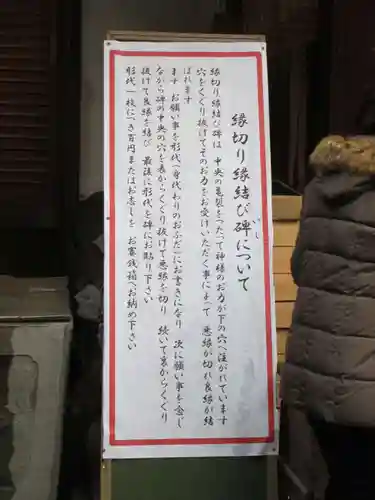 縁切り縁結び碑について
いし
縁切り縁結び碑は 中央の亀裂をつたって神様のお力が下の穴へ注がれています
穴をくぐり抜けてそのお力をお受けいただく事によって 悪縁が切れ良縁が結
ばれます
まず お願い事を形代(身代わりのおふだ)にお書きになり 次に願い事を念じ
ながら碑の中央の穴を表からくぐり抜けて悪縁を切り 続いて裏からくぐり
抜けて良縁を結び 最後に形代を碑にお貼り下さい
形代一枚につき百円またはお志しを お賽銭箱へお納め下さい